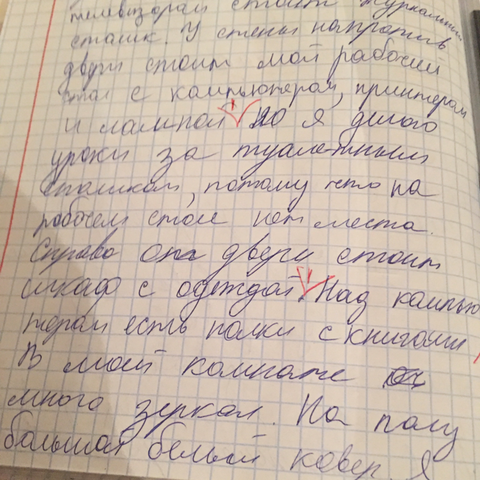 телевизорам стоит журнальный
сталик. У стены напротив
двери стоит мой рабочий
стол с кампьютерам, принтерам
и лампой. Но я делаю
уроки за туалетным
сталикам, потому что на
рабочем столе нет места.
Справа от двери стоит
шкаф с одеждой. Над кампью
терам есть полки с книгами
В моей комнате
много зеркал. На полу
большой белый ковер. Я